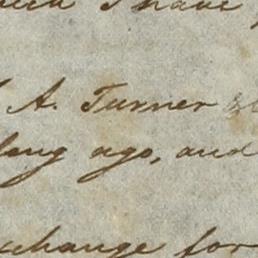 I have
A. Turner
long ago, and
exchange for